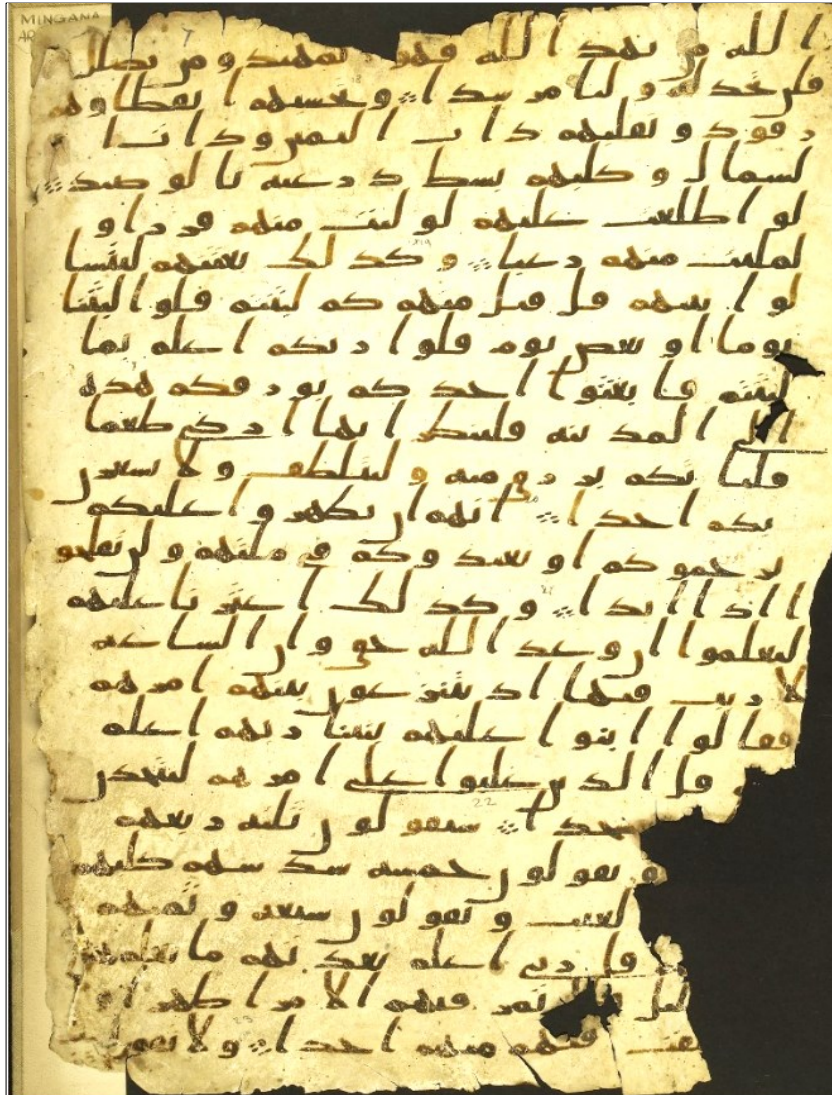 MINGANA
AR
الله من يهد الله فهو المهتد ومن يضلل
فلن تجد له وليا مرشدا وتحسبهم ايقظا وهم
رقود ونقلبهم ذات اليمين وذات ا
لشمال وكلبهم بسط ذرعيه بالوصيد
لو اطلعت عليهم لوليت منهم فررا و
لملئت منهم رعبا وكذلك بعثنهم ليتسا
لوا بينهم قل قئل منهم كم لبثتم قلوا لبثنا
يوما او بعض يوم قلوا ربكم اعلم بما
لبثتم فابعثوا احدكم بورقكم هذه
الى المدينه فلينظر ايها ازكى طعما
فلياتكم برزق منه وليتلطف ولا يشعرن
بكم احدا انهم ان يظهروا عليكم
يرجموكم او يعيدوكم في ملتهم ولن تفلحو
ا اذا ابدا وكذلك اعثرنا عليهم
ليعلموا ان وعد الله حق وان الساعه
لا ريب فيها اذ يتنزعون بينهم امرهم
فقالوا ابنوا عليهم بنينا ربهم اعلم
قل الذين غلبوا على امرهم لنتخذن
22
مسجدا سيقولون ثلثه ربعهم
و يقولون خمسه سدسهم كلبهم
لغيب ويقولون سبعه وثمنهم
قل ربي اعلم بعدتهم ما يعلمهم
قليل فلا تمر فيهم الا مرا ظهرا
فيهم منهم احدا ولا تقولن